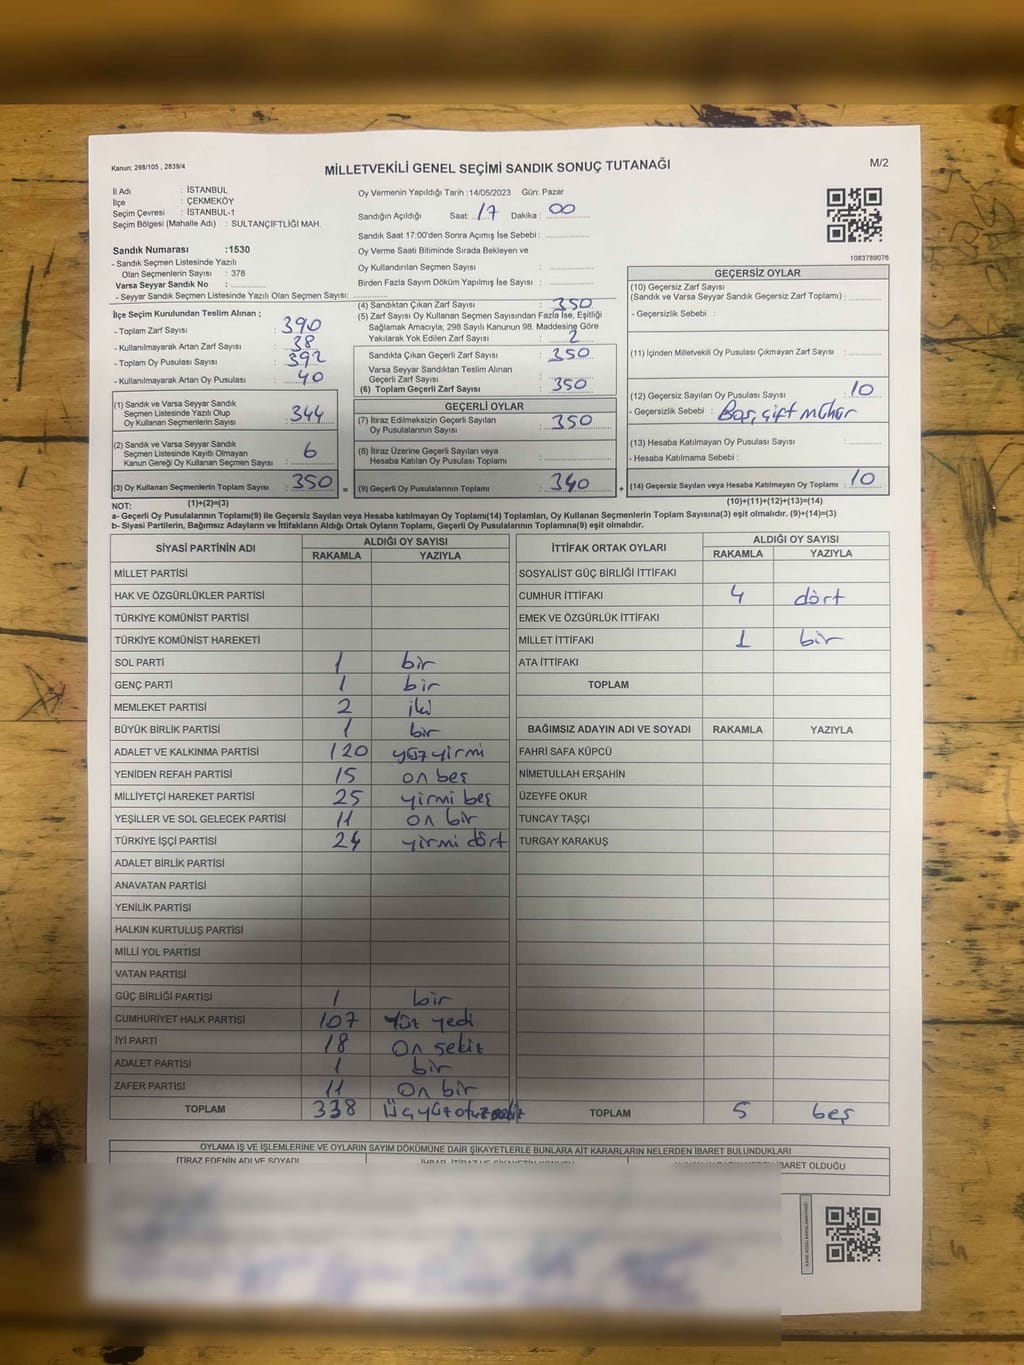 Kanun; 298/105 , 2839/4
MİLLETVEKİLİ GENEL SEÇİMİ SANDIK SONUÇ TUTANAĞI
M/2
İl Adı : İSTANBUL
İlçe : ÇEKMEKÖY
Seçim Çevresi : İSTANBUL-1
Seçim Bölgesi (Mahalle Adı) : SULTANÇİFTLİĞİ MAH.
Sandık Numarası :1530
- Sandık Seçmen Listesinde Yazılı
Olan Seçmenlerin Sayısı : 378
Varsa Seyyar Sandık No :
- Seyyar Sandık Seçmen Listesinde Yazılı Olan Seçmen Sayısı:
Oy Vermenin Yapıldığı Tarih :14/05/2023 Gün: Pazar
Sandığın Açıldığı Saat: 17 Dakika : 00
Sandık Saat 17:00'den Sonra Açımış İse Sebebi :
Oy Verme Saati Bitiminde Sırada Bekleyen ve
Oy Kullandırılan Seçmen Sayısı :
Birden Fazla Sayım Döküm Yapılmış İse Sayısı :
1083789076
İlçe Seçim Kurulundan Teslim Alınan ;
- Toplam Zarf Sayısı : 390
- Kullanılmayarak Artan Zarf Sayısı : 38
- Toplam Oy Pusulası Sayısı : 392
- Kullanılmayarak Artan Oy Pusulası : 40
(1) Sandık ve Varsa Seyyar Sandık
Seçmen Listesinde Yazılı Olup
Oy Kullanan Seçmenlerin Sayısı : 344
(2) Sandık ve Varsa Seyyar Sandık
Seçmen Listesinde Kayıtlı Olmayan
Kanun Gereği Oy Kullanan Seçmen Sayısı : 6
(3) Oy Kullanan Seçmenlerin Toplam Sayısı : 350 =
(4) Sandıktan Çıkan Zarf Sayısı : 350
(5) Zarf Sayısı Oy Kullanan Seçmen Sayısından Fazla İse, Eşitliği
Sağlamak Amacıyla; 298 Sayılı Kanunun 98. Maddesine Göre
Yakılarak Yok Edilen Zarf Sayısı : 2
Sandıkta Çıkan Geçerli Zarf Sayısı : 350
Varsa Seyyar Sandıktan Teslim Alınan
Geçerli Zarf Sayısı :
(6) Toplam Geçerli Zarf Sayısı : 350
GEÇERLİ OYLAR
(7) İtiraz Edilmeksizin Geçerli Sayılan
Oy Pusulalarının Sayısı : 350
(8) İtiraz Üzerine Geçerli Sayılan veya
Hesaba Katılan Oy Pusulası Toplamı :
(9) Geçerli Oy Pusulalarının Toplamı : 340 +
GEÇERSİZ OYLAR
(10) Geçersiz Zarf Sayısı
(Sandık ve Varsa Seyyar Sandık Geçersiz Zarf Toplamı) :
- Geçersizlik Sebebi :
(11) İçinden Milletvekili Oy Pusulası Çıkmayan Zarf Sayısı :
(12) Geçersiz Sayılan Oy Pusulası Sayısı : 10
- Geçersizlik Sebebi : Boş, çift mühür
(13) Hesaba Katılmayan Oy Pusulası Sayısı :
- Hesaba Katılmama Sebebi :
(14) Geçersiz Sayılan veya Hesaba Katılmayan Oy Toplamı : 10
NOT: (1)+(2)=(3) (10)+(11)+(12)+(13)=(14)
a- Geçerli Oy Pusulalarının Toplamı(9) İle Geçersiz Sayılan veya Hesaba katılmayan Oy Toplamı(14) Toplamları, Oy Kullanan Seçmenlerin Toplam Sayısına(3) eşit olmalıdır. (9)+(14)=(3)
b- Siyasi Partilerin, Bağımsız Adayların ve İttifakların Aldığı Ortak Oyların Toplamı, Geçerli Oy Pusulalarının Toplamına(9) eşit olmalıdır.
SİYASİ PARTİNİN ADI ALDIĞI OY SAYISI
RAKAMLA YAZIYLA
MİLLET PARTİSİ
HAK VE ÖZGÜRLÜKLER PARTİSİ
TÜRKİYE KOMÜNİST PARTİSİ
TÜRKİYE KOMÜNİST HAREKETİ
SOL PARTİ 1 bir
GENÇ PARTİ 1 bir
MEMLEKET PARTİSİ 2 iki
BÜYÜK BİRLİK PARTİSİ 1 bir
ADALET VE KALKINMA PARTİSİ 120 yüz yirmi
YENİDEN REFAH PARTİSİ 15 on beş
MİLLİYETÇİ HAREKET PARTİSİ 25 yirmi beş
YEŞİLLER VE SOL GELECEK PARTİSİ 11 on bir
TÜRKİYE İŞÇİ PARTİSİ 24 yirmi dört
ADALET BİRLİK PARTİSİ
ANAVATAN PARTİSİ
YENİLİK PARTİSİ
HALKIN KURTULUŞ PARTİSİ
MİLLİ YOL PARTİSİ
VATAN PARTİSİ
GÜÇ BİRLİĞİ PARTİSİ 1 bir
CUMHURİYET HALK PARTİSİ 107 yüz yedi
İYİ PARTİ 18 On sekiz
ADALET PARTİSİ 1 bir
ZAFER PARTİSİ 11 On bir
TOPLAM 338 Üçyüzotuzsekiz
İTTİFAK ORTAK OYLARI ALDIĞI OY SAYISI
RAKAMLA YAZIYLA
SOSYALİST GÜÇ BİRLİĞİ İTTİFAKI
CUMHUR İTTİFAKI 4 dört
EMEK VE ÖZGÜRLÜK İTTİFAKI
MİLLET İTTİFAKI 1 bir
ATA İTTİFAKI
TOPLAM
BAĞIMSIZ ADAYIN ADI VE SOYADI RAKAMLA YAZIYLA
FAHRİ SAFA KÜPCÜ
NİMETULLAH ERŞAHİN
ÜZEYFE OKUR
TUNCAY TAŞÇI
TURGAY KARAKUŞ
TOPLAM 5 beş
OYLAMA İŞ VE İŞLEMLERİNE VE OYLARIN SAYIM DÖKÜMÜNE DAİR ŞİKAYETLERLE BUNLARA AİT KARARLARIN NELERDEN İBARET BULUNDUKLARI
İTİRAZ EDENİN ADI VE SOYADI
İBARET OLDUĞU